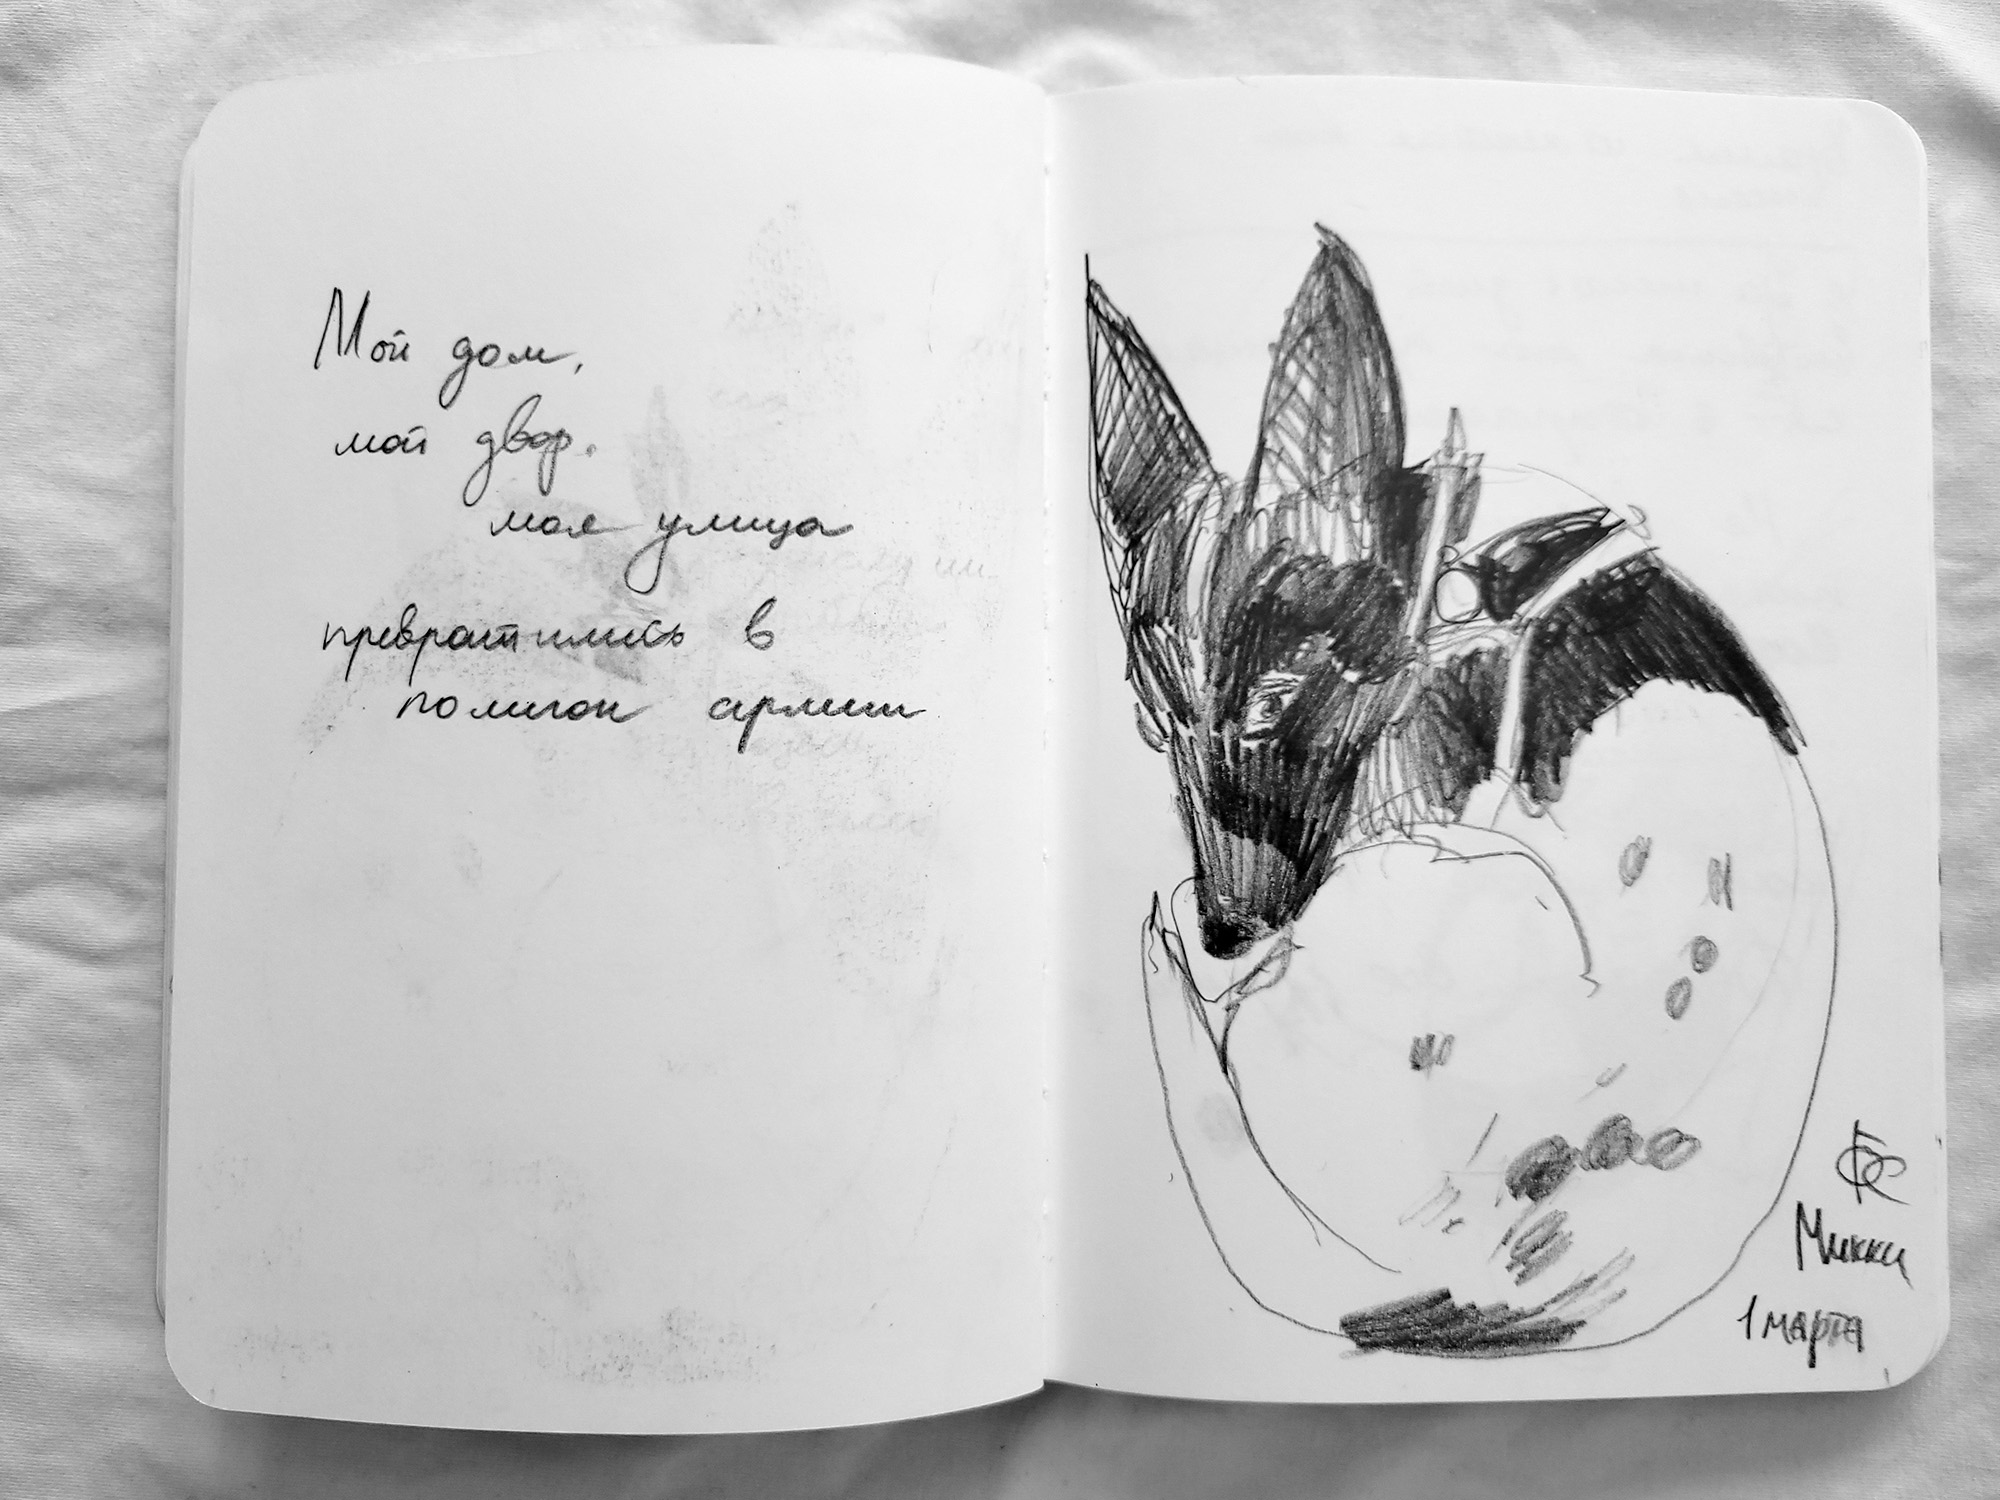 Мой дом,
мой двор.
моя улица
превратились в
полигон армии
Микки
1 марта